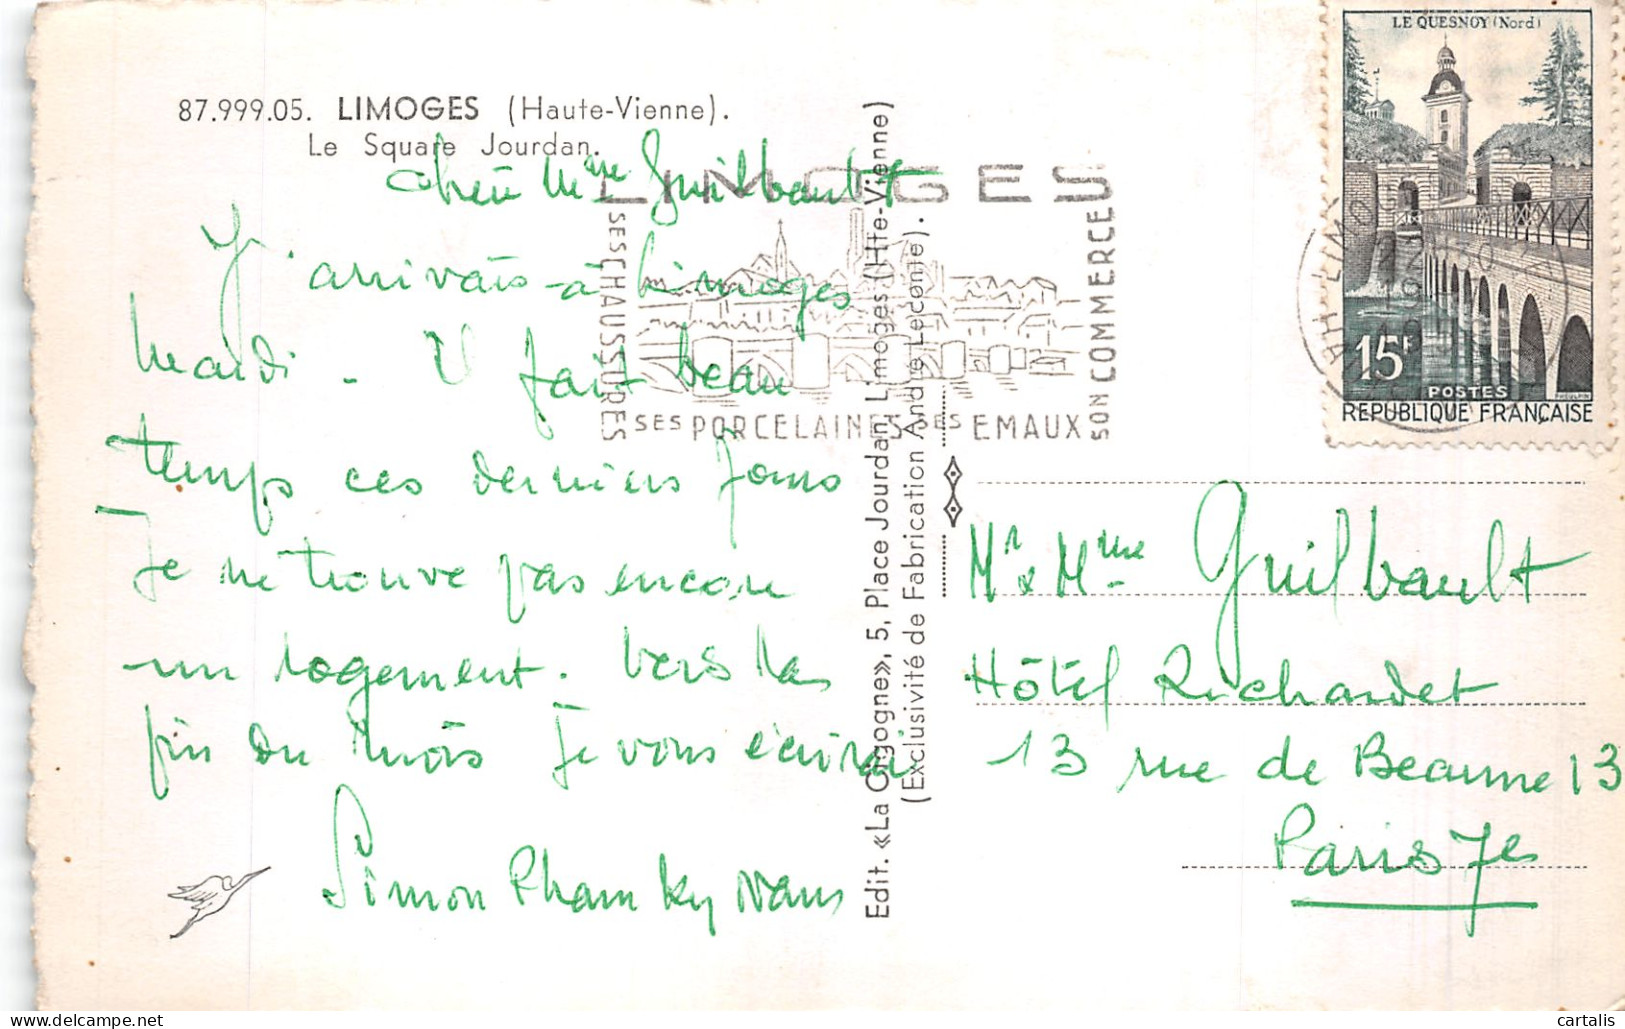 87.999.05. LIMOGES (Haute-Vienne).
Le Square Jourdan.
Mme Guilbault
J'arrivais à Limoges
Mardi - Il fait beau
temps ces derniers Jours
Je ne trouve pas encore
un logement. Vers la
fin du mois Je vous écrirai
Simon Pham Ky
LIMOGES
SES CHAUSSURES
SES PORCELAINES SES EMAUX
SON COMMERCE
Edit. «La Cigogne», 5, Place Jourdan, Limoges (Hte-Vienne)
(Exclusivité de Fabrication André Leconte).
LE QUESNOY (Nord)
15F
POSTES
REPUBLIQUE FRANÇAISE
Mr & Mme Guilbault
Hôtel Richardet
13 rue de Beaune 13
Paris 7e
cartalis